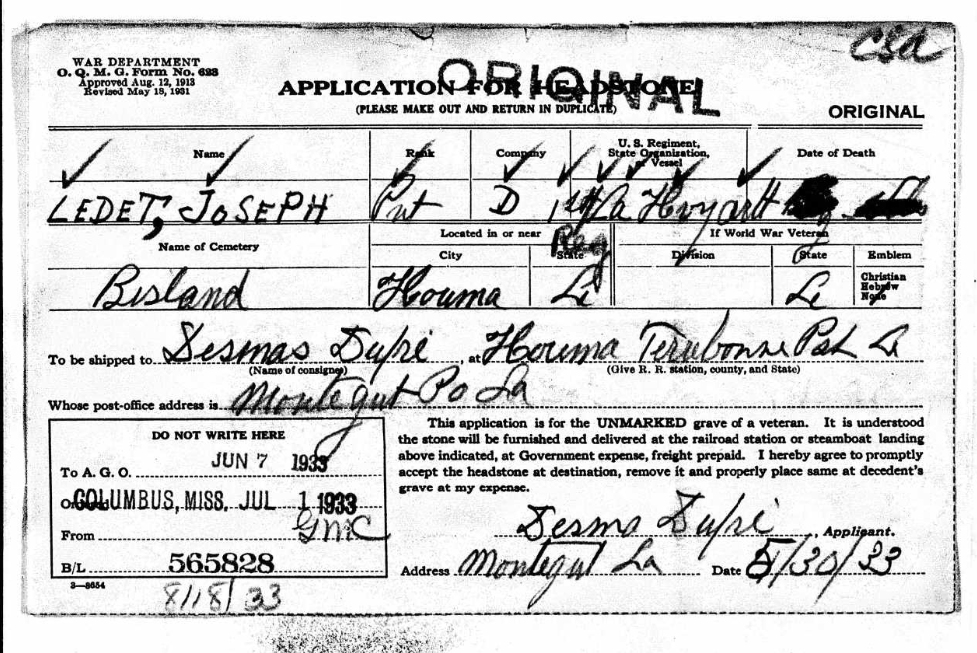 csa
WAR DEPARTMENT
O. Q. M. G. Form No. 623
Approved Aug. 12, 1913
Revised May 18, 1931
APPLICATION FOR HEADSTONE
ORIGINAL
(PLEASE MAKE OUT AND RETURN IN DUPLICATE)
ORIGINAL
Name Rank Company U. S. Regiment, State Organization, or Vessel Date of Death
LEDET, JOSEPH Pvt D 1st La Hvy artt
Reg
Name of Cemetery Located in or near If World War Veteran
City State Division State Emblem
Bisland Houma La La Christian
Hebrew
None
To be shipped to Desmas Dupré, at Houma Terrebonne Psh La
(Name of consignee) (Give R. R. station, county, and State)
Whose post-office address is Montegut Po La
DO NOT WRITE HERE
To A. G. O. JUN 7 1933
COLUMBUS, MISS. JUL 1 1933
From GMC
B/L 565828
3—8654
8/18/33
This application is for the UNMARKED grave of a veteran. It is understood
the stone will be furnished and delivered at the railroad station or steamboat landing
above indicated, at Government expense, freight prepaid. I hereby agree to promptly
accept the headstone at destination, remove it and properly place same at decedent's
grave at my expense.
Desma Dupré, Applicant.
Address Montegut La Date 5/30/33